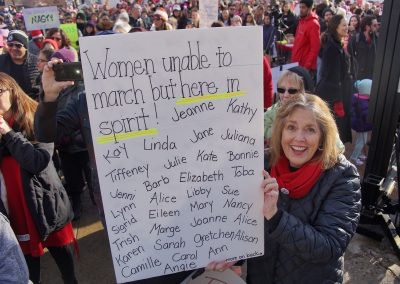 NASTY
Women unable to
march but here in
spirit!
Jeanne Kathy
Kay Linda Jane Juliana
Tiffeney Julie Kate Bonnie
Jenni Barb Elizabeth Toba
Lynn Alice Libby Sue
Sigrid Eileen Mary Nancy
Trish Marge Joanne Alice
Karen Sarah Gretchen Alison
Camille Carol Ann
Angie
more on back